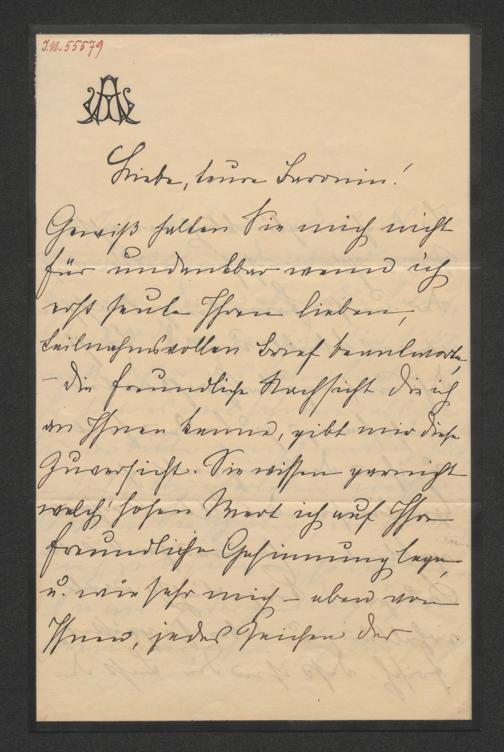 J.N. 55579
Liebe, teure Baronin!
Gewiß halten Sie mich nicht
für undankbar wenn ich
erst heute Ihren lieben,
teilnahmsvollen Brief beantworte,
– die freundliche Nachsicht die ich
an Ihnen kenne, gibt mir diese
Zuversicht. Sie wissen garnicht
welch' hohen Wert ich auf Ihre
freundliche Gesinnung lege,
u. wie sehr mich – eben von
Ihnen, jedes Zeichen der